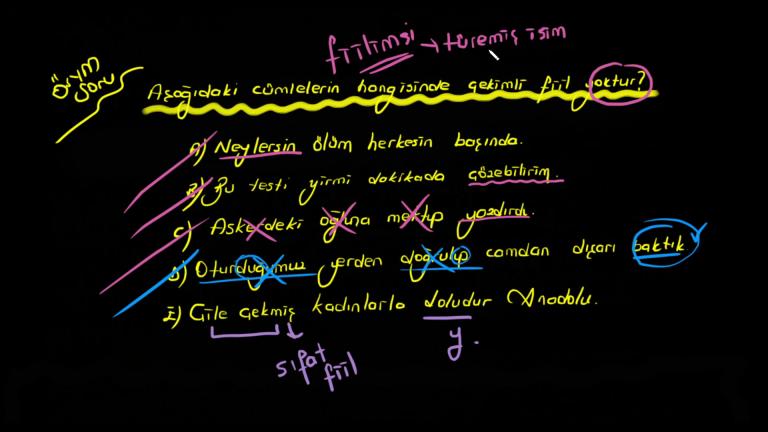 fiilimsi → türemiş isim
ÖSYM
soru
Aşağıdaki cümlelerin hangisinde çekimli fiil yoktur?
A) Neylersin ölüm herkesin başında.
B) Bu testi yirmi dakikada çözebilirim.
C) Askerdeki oğluna mektup yazdırdı.
D) Oturduğumuz yerden doğrulup camdan dışarı baktık
E) Çile çekmiş kadınlarla doludur Anadolu.
sıfat
fiil
y.